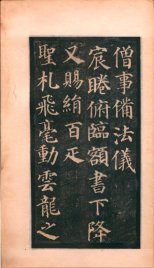 僧事備法儀
宸睠俯臨額書下降
又賜絹百疋
聖札飛毫動雲龍之